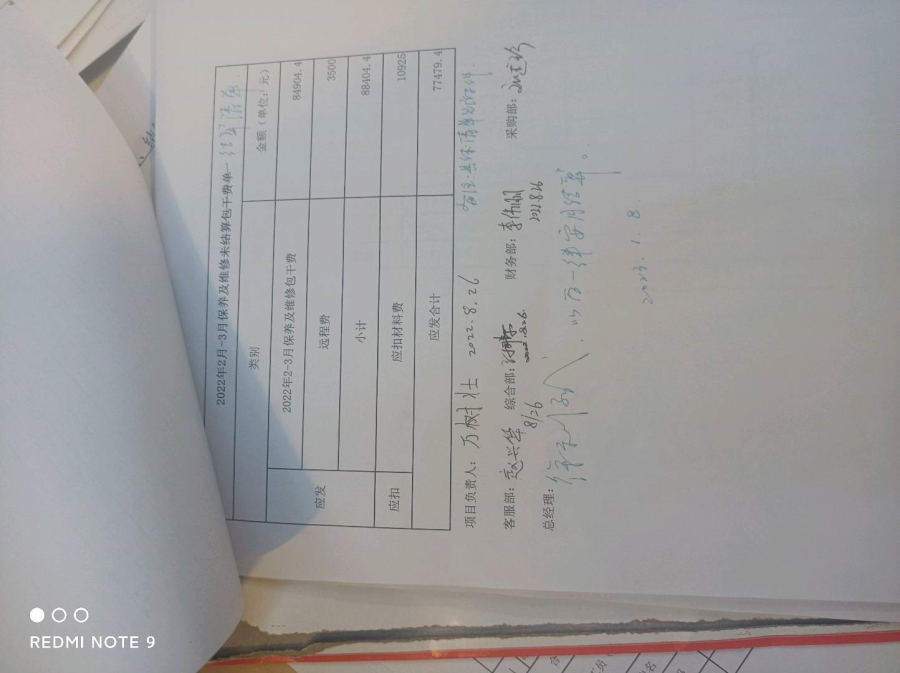 2022年2月-3月保养及维修未结算包干费单-结算清单
类别 金额（单位：元）
应发 2022年2-3月保养及维修包干费 84904.4
远程费 3500
小计 88404.4
应扣 应扣材料费 10925
应发合计 77479.4
备注:具体清单见附件.
项目负责人: 万树壮 2022.8.26
客服部: 8/26 综合部: 2022.8.26 财务部: 李伟 2022.8.26 采购部:
总经理:
以后一律按月结算。
2023.1.8.
REDMI NOTE 9